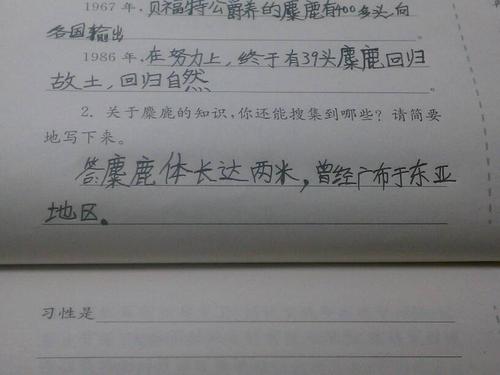 1967年，贝福特公爵养的麋鹿有400多头,向
各国输出。
1986年,在努力上，终于有39头麋鹿回归
故土，回归自然。
2. 关于麋鹿的知识,你还能搜集到哪些？请简要
地写下来。
答:麋鹿体长达两米，曾经广布于东亚
地区。
习性是